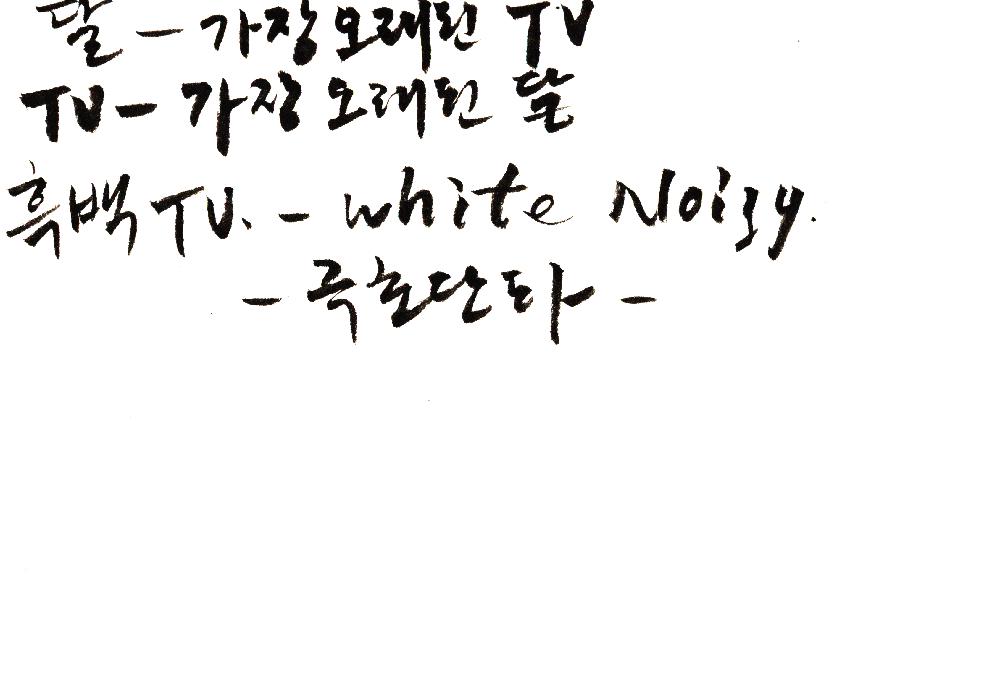 달 - 가장 오래된 TV
TV - 가장 오래된 달
흑백 TV. - white Noisy.
- 극초단파 -